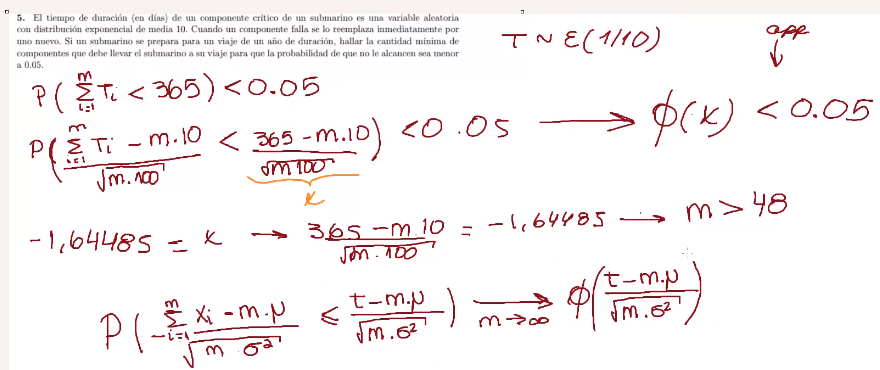 5. El tiempo de duración (en días) de un componente crítico de un submarino es una variable aleatoria
con distribución exponencial de media 10. Cuando un componente falla se lo reemplaza inmediatamente por
uno nuevo. Si un submarino se prepara para un viaje de un año de duración, hallar la cantidad mínima de
componentes que debe llevar el submarino a su viaje para que la probabilidad de que no le alcancen sea menor
a 0.05.
T ~ ε(1/10)
app
↓
P(∑_{i=1}^{m} Ti < 365) < 0.05
P((∑_{i=1}^{m} Ti - m.10)/√(m.100) < (365 - m.10)/√(m100)) < 0.05 → ϕ(k) < 0.05
k
-1,64485 = k → (365 - m.10)/√(m.100) = -1,64485 → m > 48
P(∑_{i=1}^{m} (xi - m.μ)/√(m σ²) ≤ (t - m.μ)/√(m.σ²)) →_{m→∞} ϕ((t - m.μ)/√(m.σ²))